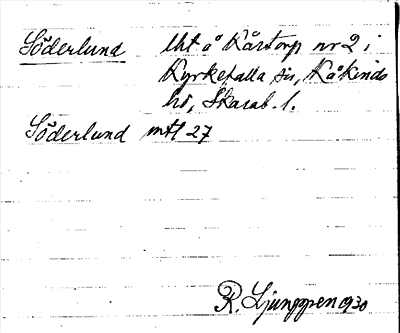 Söderlund lht å Kårstorp nr 2 i
Kyrkefalla sn, Kåkinds
hd, Skarab. l.
Söderlund mtl 27
R. Ljunggren 1930